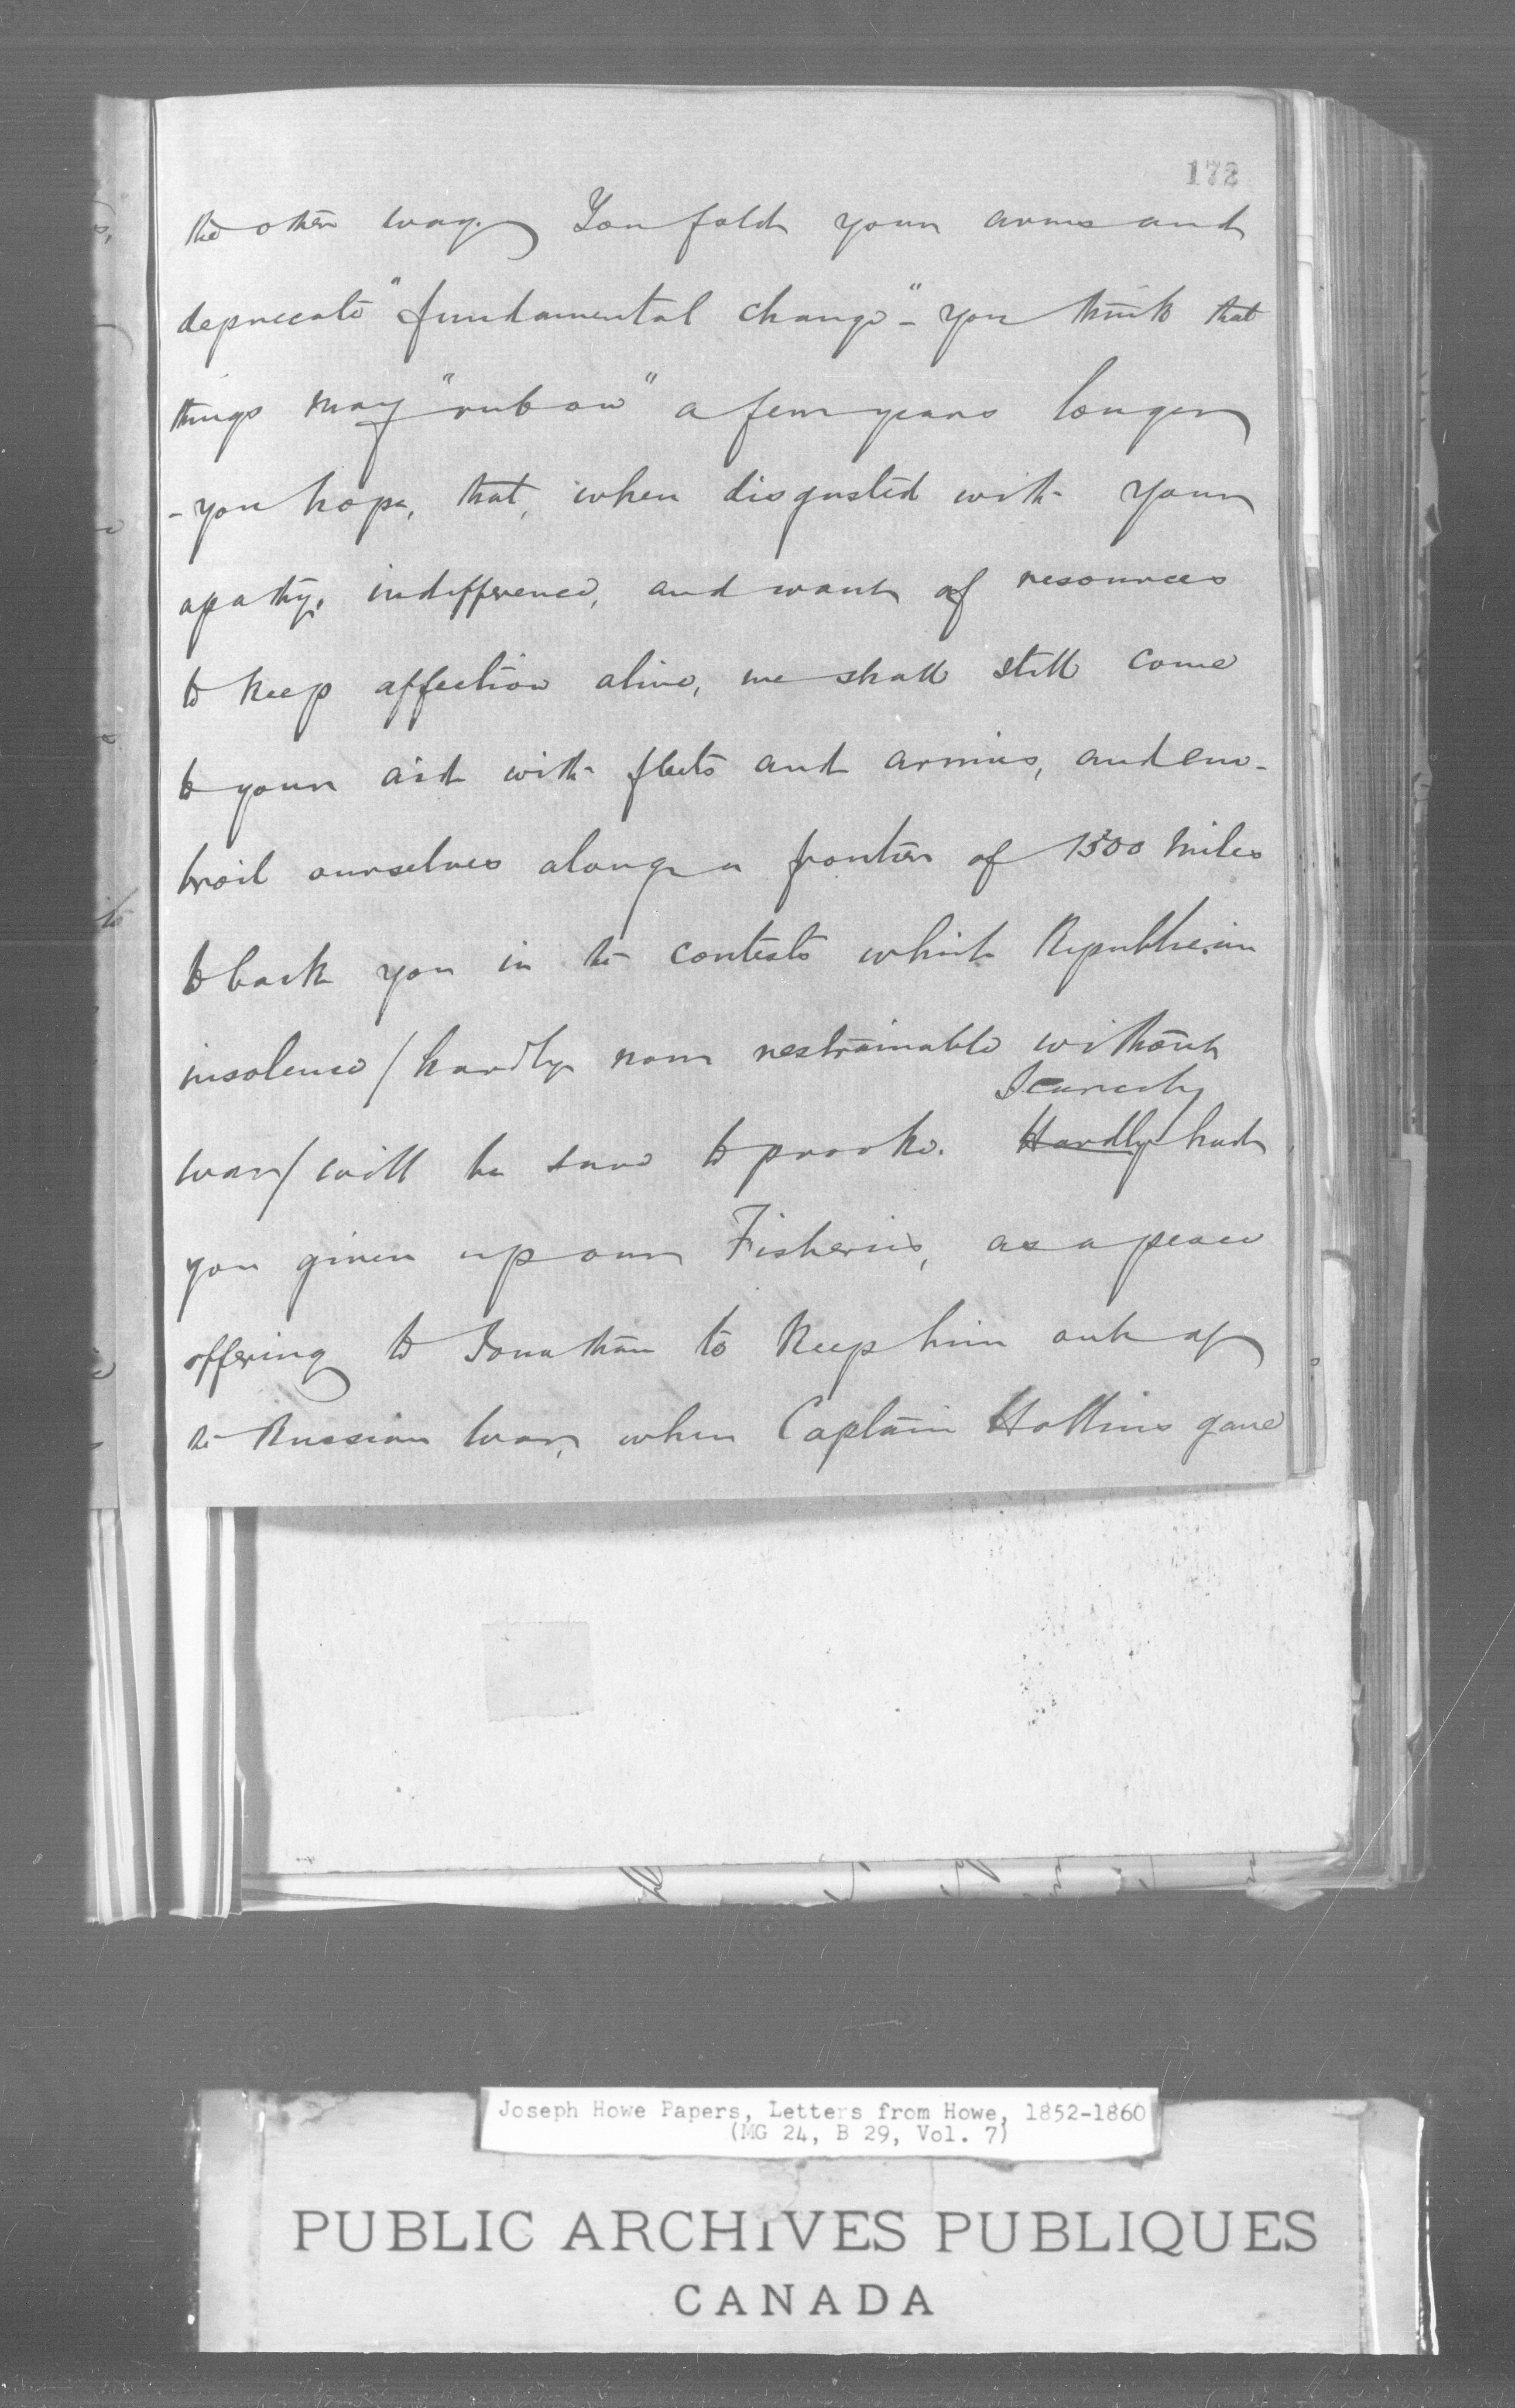 172
the other way. You fold your arms and
deprecate "fundamental change" - you think that
things may "rub on" a few years longer
- you hope, that, when disgusted with your
apathy, indifference, and want of resources
to keep affection alive, we shall still come
to your aid with fleets and armies, and em-
broil ourselves along a frontier of 1500 miles
to back you in the contests which Republican
insolence / hardly now restrainable without
Scarcely
war / will be sure to provoke. Hardly had
you given up our Fisheries, as a peace
offering to Jonathan to keep him out of
the Russian War, when Captain Hollins gave
Joseph Howe Papers, Letters from Howe, 1852-1860
(MG 24, B 29, Vol. 7)
PUBLIC ARCHIVES PUBLIQUES
CANADA